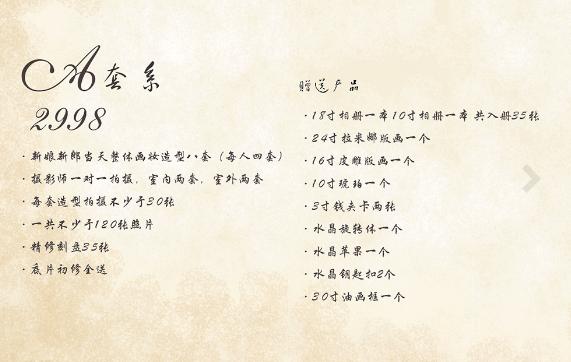 A套系
2998
·新娘新郎当天整体画妆造型八套（每人四套）
·摄影师一对一拍摄，室内两套，室外两套
·每套造型拍摄不少于30张
·一共不少于120张照片
·精修刻盘35张
·底片初修全送
赠送产品
·18寸相册一本10寸相册一本 共入册35张
·24寸拉米娜版画一个
·16寸皮雕版画一个
·10寸琥珀一个
·3寸钱夹卡两张
·水晶旋转体一个
·水晶苹果一个
·水晶钥匙扣2个
·30寸油画框一个